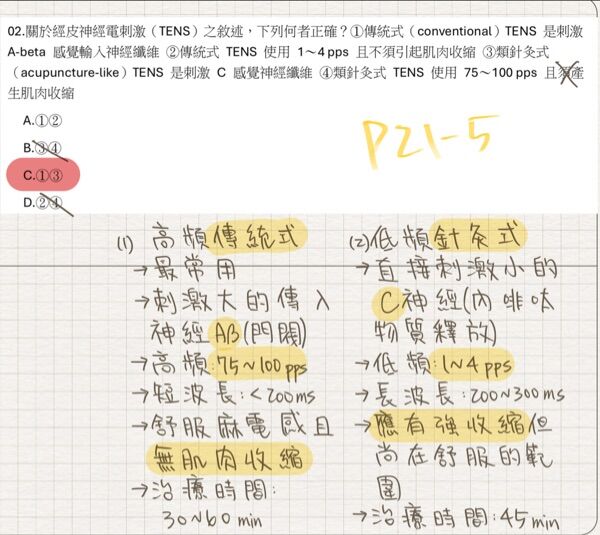 02.關於經皮神經電刺激（TENS）之敘述，下列何者正確？①傳統式（conventional）TENS 是刺激
A-beta 感覺輸入神經纖維 ②傳統式 TENS 使用 1～4 pps 且不須引起肌肉收縮 ③類針灸式
（acupuncture-like）TENS 是刺激 C 感覺神經纖維 ④類針灸式 TENS 使用 75～100 pps 且須產
生肌肉收縮
A.①②
B.③④
C.①③
D.②④
P21-5
(1) 高頻傳統式
→最常用
→刺激大的傳入
神經AB(門閥)
→高頻:75~100 pps
→短波長:<200ms
→舒服麻電感且
無肌肉收縮
→治療時間:
30~60 min
(2)低頻針灸式
→直接刺激小的
C神經(內啡肽
物質釋放)
→低頻:1~4 pps
→長波長:200~300ms
→應有強收縮但
尚在舒服的範
圍
→治療時間:45min